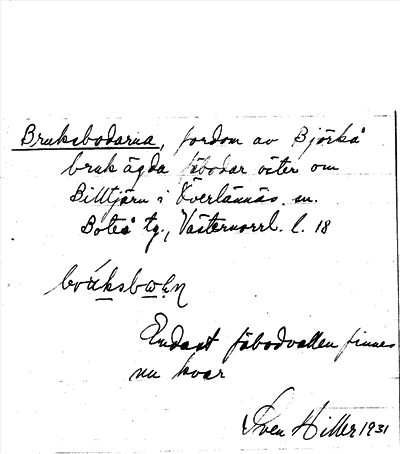 Bruksbodarna, fordom av Björkå
bruk ägda fäbodar väster om
Billtjärn i Överlännäs sn.
Boteå tg., Västernorrl. l. 18
Endast fäbodvallen finnes
nu kvar
Sven Hiller 1931